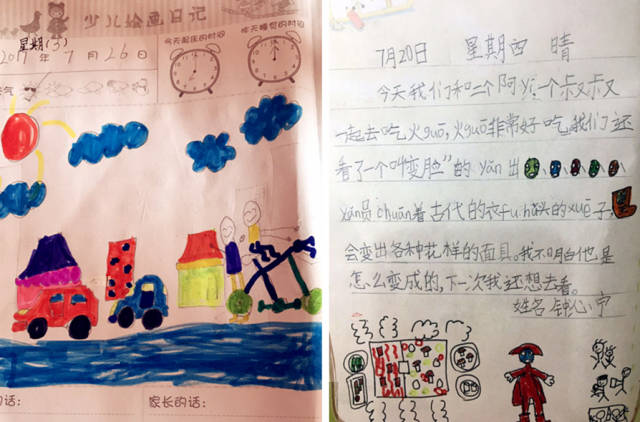 少儿绘画日记
星期(3)
今天起床的时间 昨天睡觉的时间
2017年7月26日
气
的话: 家长的话:
7月20日 星期四 晴
今天我们和二个阿yí,一个叔叔
一起去吃火guō,火guō非常好吃。我们还
看了一个叫“变脸”的 yǎn 出
yǎn员chuān着古代的衣fu, 头的xuē子,
会变出各种花样的面具。我不明白他是
怎么变成的,下一次我还想去看。
姓名 钟心宁